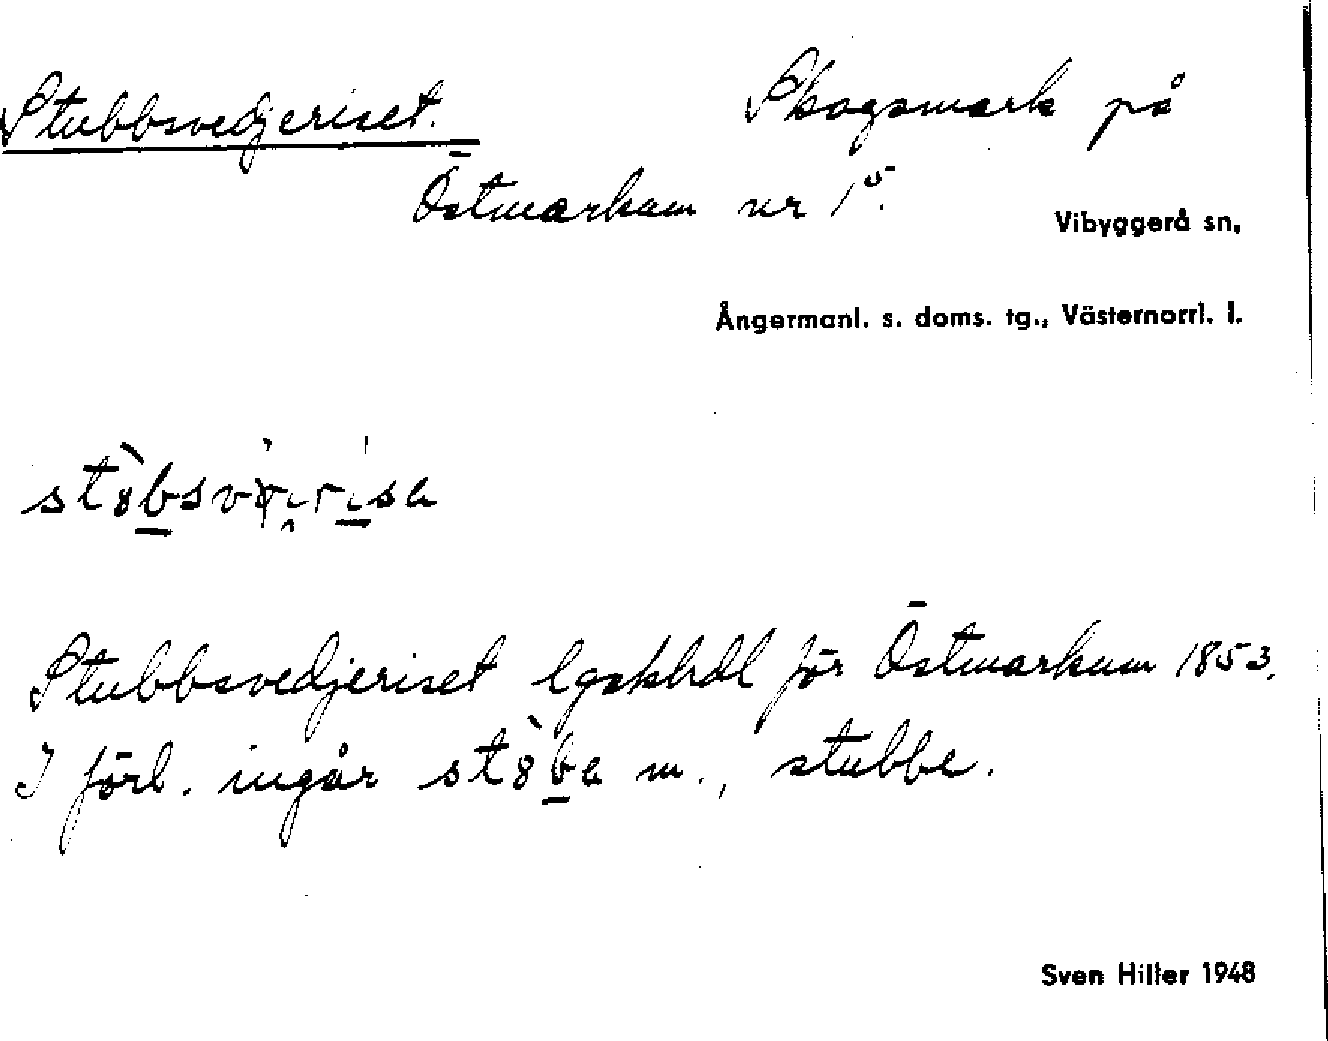 Stubbsvedjeriset. Skogsmark på
Östmarkum nr 1⁵.
Vibyggerå sn,
Ångermanl. s. doms. tg., Västernorrl. l.
Stubbsvedjeriset lgskhdl för Östmarkum 1853.
I förb. ingår m., stubbe.
Sven Hiller 1948